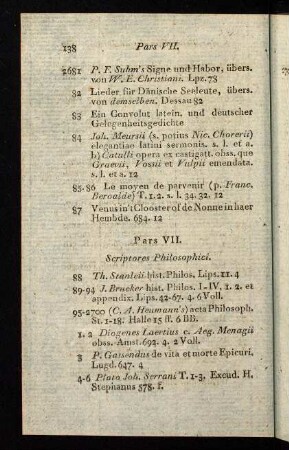 138 Pars VII.
2681 P. F. Suhm's Signe und Habor, übers.
von W. E. Christiani. Lpz. 78
82 Lieder für Dänische Seeleute, übers.
von demselben. Dessau 82
83 Ein Convolut latein. und deutscher
Gelegenheitsgedichte
84 Joh. Meursii (s. potius Nic. Chorerii)
elegantiae latini sermonis. s. l. et a.
b) Catulli opera ex castigatt. obss. que
Graevii, Vossii et Vulpii emendata.
s. l. et a. 12
85-86 Le moyen de parvenir (p. Franc.
Beroalde) T. 1. 2. s. l. 34. 32. 12
87 Venus in't Clooster of de Nonne in haer
Hembde. 684. 12
Pars VII.
Scriptores Philosophici.
88 Th. Stanleii hist. Philos. Lips. 11. 4
89-94 J. Brucker hist. Philos. I-IV. 1. 2. et
appendix. Lips. 42-67. 4. 6 Voll.
95-2700 (C. A. Heumann's) acta Philosoph.
St. 1-18. Halle 15 ff. 6 BB.
1. 2 Diogenes Laertius c. Aeg. Menagii
obss. Amst. 692. 4. 2 Voll.
3 P. Gassendus de vita et morte Epicuri.
Lugd. 647. 4
4-6 Plato Joh. Serrani T. 1-3. Excud. H.
Stephanus 578. f.